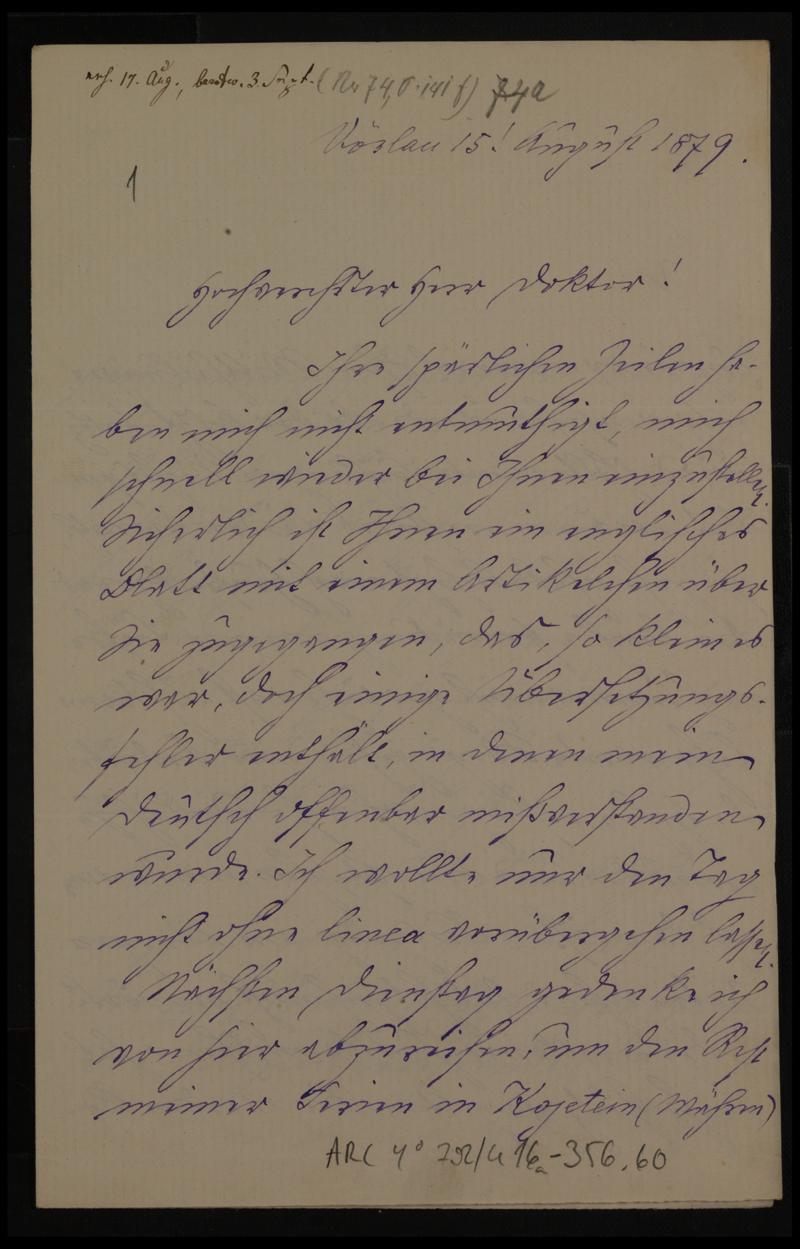 erh. 17. Aug., beantw. 3. Sept. (Nr 74, S. 141 f) 74a
Vöslau 15! August 1879.
1
Hochverehrter Herr Doktor!
Ihre spärlichen Zeilen ha-
ben mich nicht entmuthigt, mich
schnell wieder bei Ihnen einzustellen.
Sicherlich ist Ihnen ein englisches
Blatt mit einem Artikelchen über
Sie zugegangen, das, so klein es
war, doch einige Übersetzungs-
fehler enthält, in denen mein
Deutsch offenbar mißverstanden
wurde. Ich wollte nur den Tag
nicht ohne linea vorübergehen lassen.
Nächsten Dienstag gedenke ich
von hier abzureisen, um den Rest
meiner Ferien in Kojetein (Mähren)
ARC 4° 792/G 16a-356.60